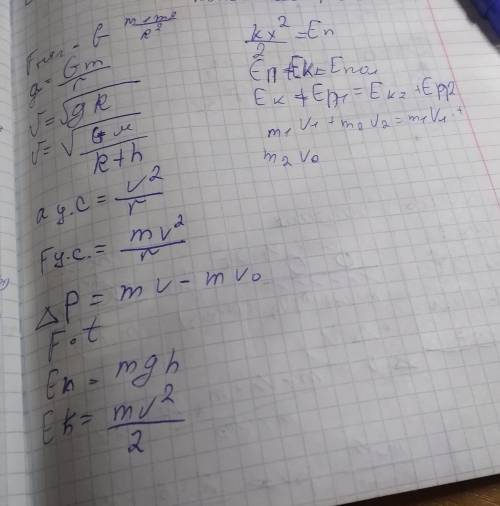 Fтяг = G m₁m₂/R²
g = Gm/r
v = √gR
v = √(GM/R+h)
a y.c = v²/r
Fy.c. = mv²/r
ΔP = mv - mv₀
F·t
Eп = mgh
Ek = mv²/2
kx²/2 = Eп
Eп + Ek = Eпол
Ek + Ep1 = Ek2 + Ep2
m₁ v₁ + m₂ v₂ = m₁ v₁ +
m₂ v₀